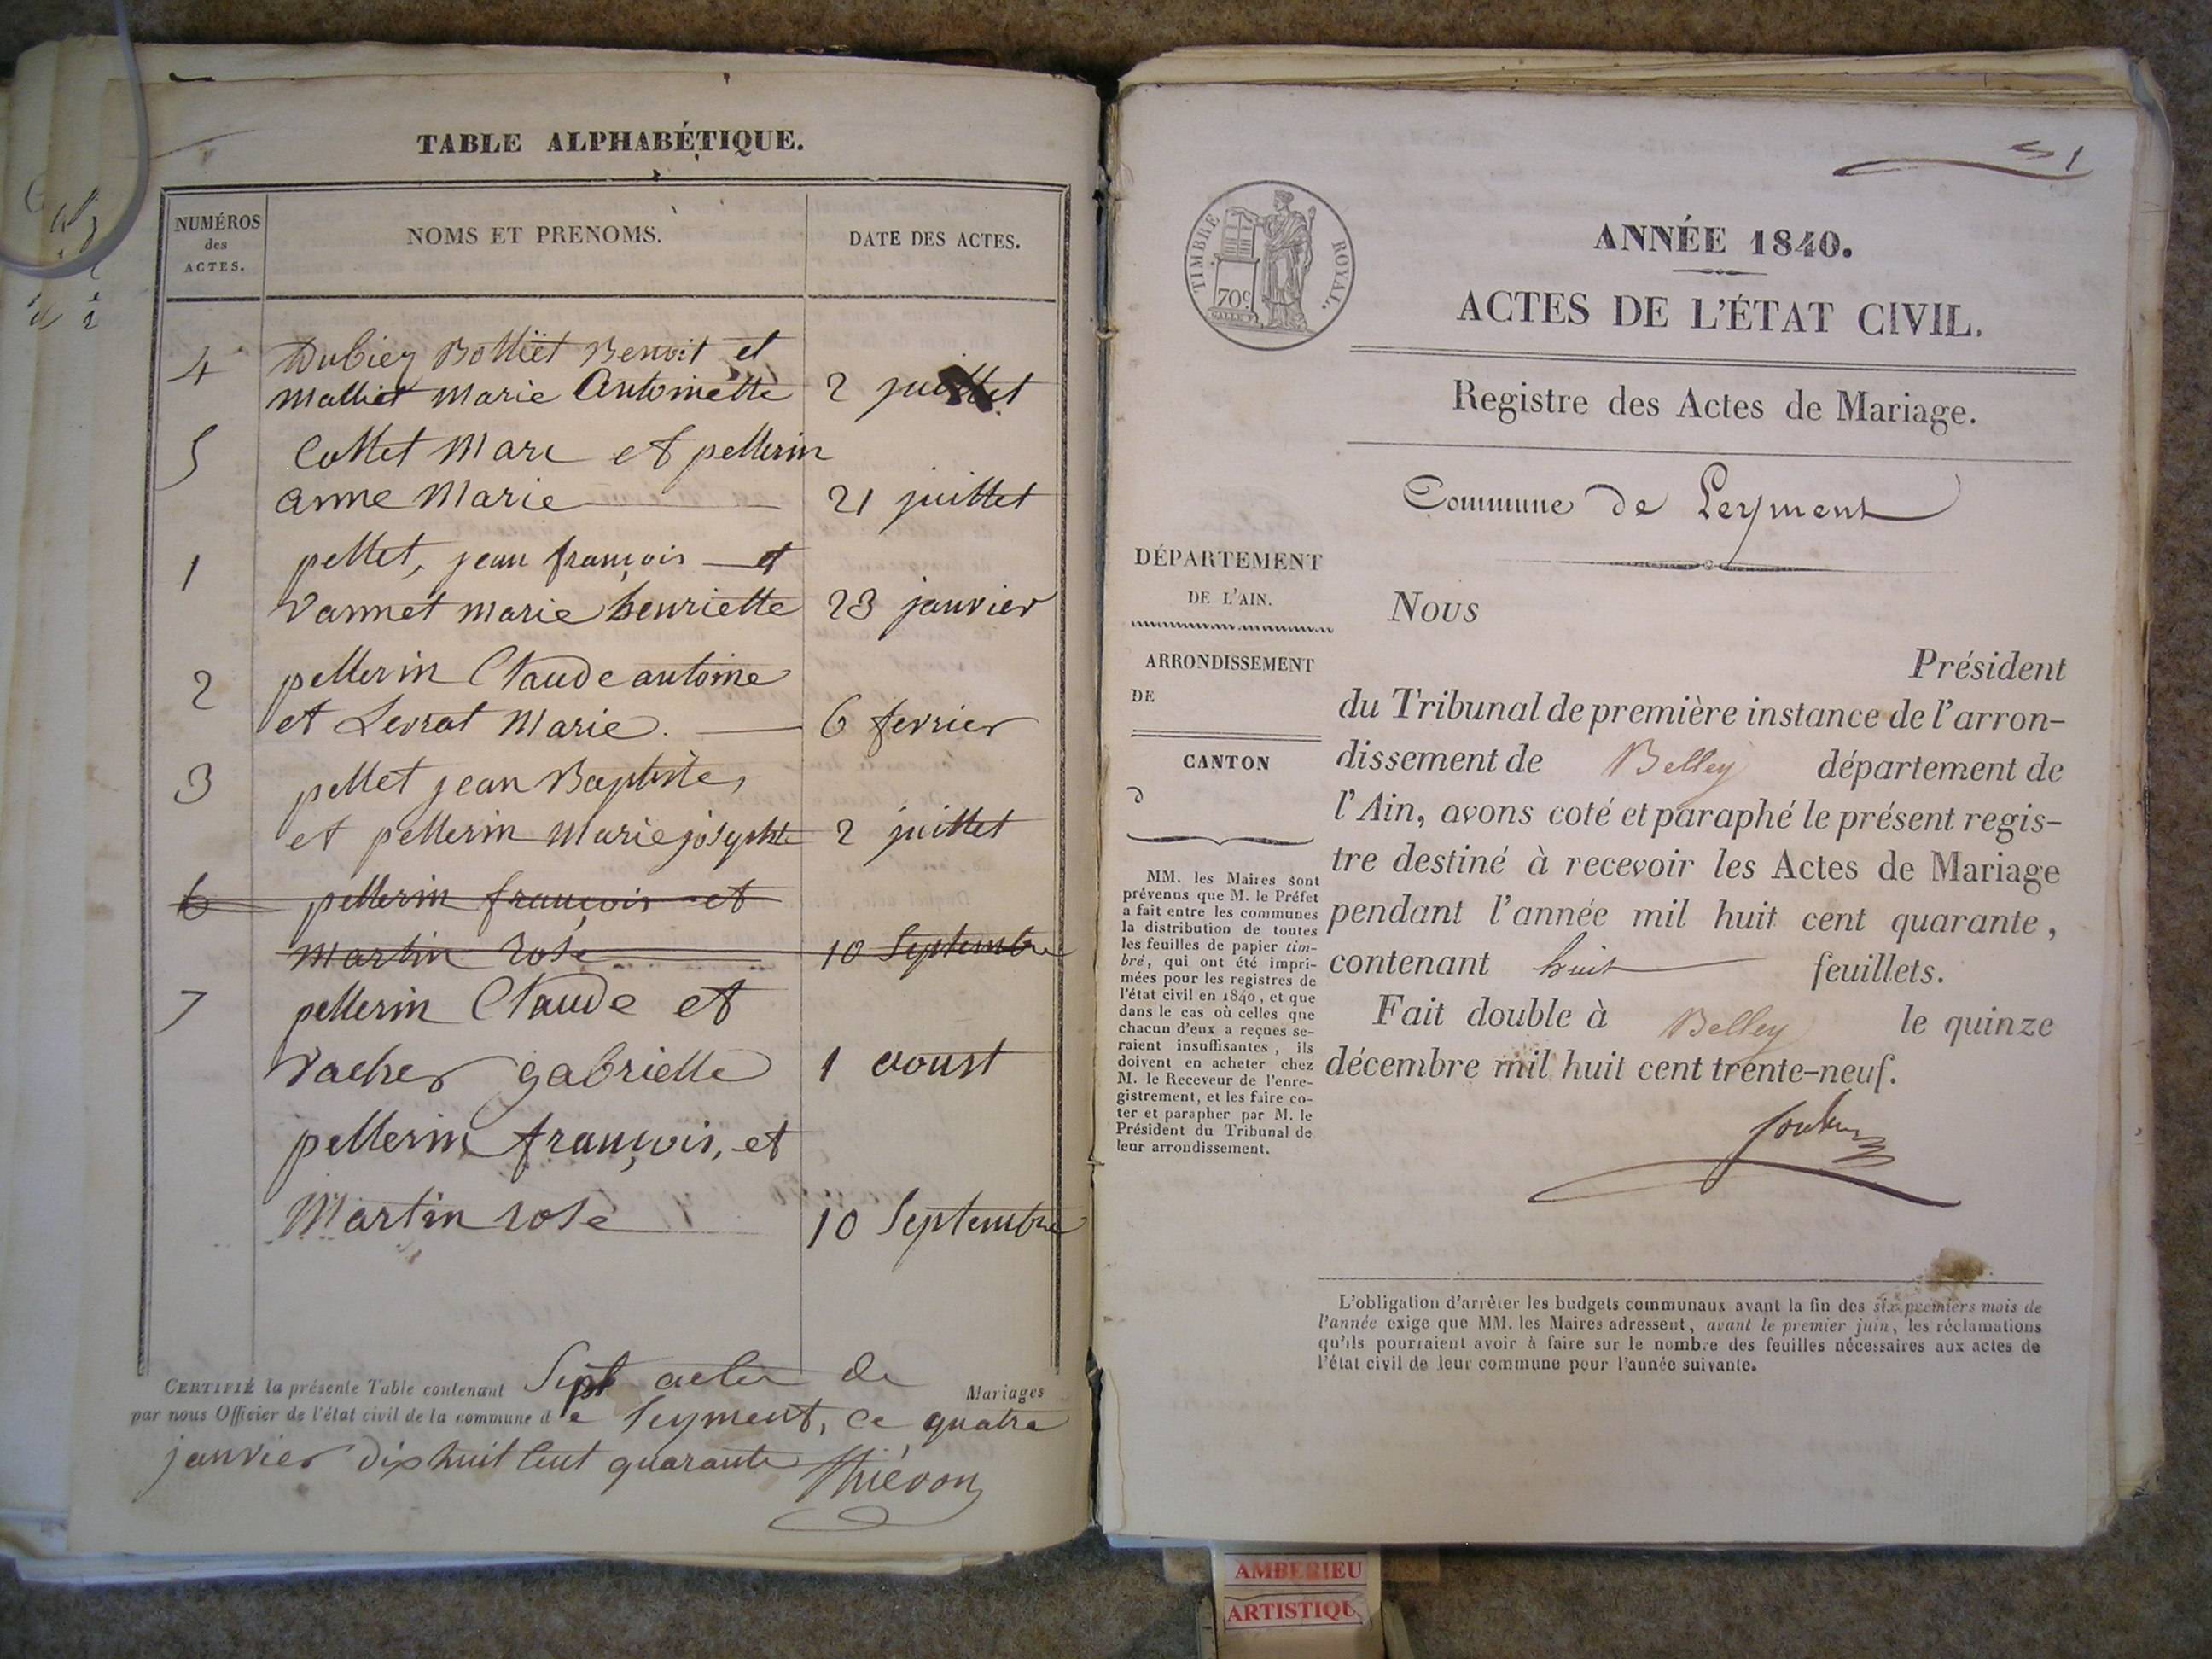 TABLE ALPHABÉTIQUE.
NUMÉROS
des
ACTES.
NOMS ET PRENOMS.
DATE DES ACTES.
4 Dubiey Bolliet Benoit et
Malliet Marie Antoinette 2 juillet
5 Collet Marc et pellerin
anne Marie 21 juillet
1 pellet, jean françois et
Vannet marie henriette 23 janvier
2 pellerin Claude antoine
et Levrat Marie. 6 fevrier
3 pellet jean Baptiste,
et pellerin Marie josephte 2 juillet
6 pellerin françois et
Martin rose 10 Septembre
7 pellerin Claude et
Vacher gabrielle 1 aoust
pellerin françois, et
Martin rose 10 Septembre
CERTIFIÉ la présente Table contenant Sept actes de Mariages
par nous Officier de l'état civil de la commune d e Leyment, ce quatre
janvier dix huit Cent quarante Thiévon
1
TIMBRE ROYAL.
70c
ANNÉE 1840.
ACTES DE L'ÉTAT CIVIL.
Registre des Actes de Mariage.
Commune de Leyment
DÉPARTEMENT
DE L'AIN.
ARRONDISSEMENT
DE
CANTON
d
MM. les Maires sont
prévenus que M. le Préfet
a fait entre les communes
la distribution de toutes
les feuilles de papier tim-
bré, qui ont été impri-
mées pour les registres de
l'état civil en 1840, et que
dans le cas où celles que
chacun d'eux a reçues se-
raient insuffisantes, ils
doivent en acheter chez
M. le Receveur de l'enre-
gistrement, et les faire co-
ter et parapher par M. le
Président du Tribunal de
leur arrondissement.
Nous
Président
du Tribunal de première instance de l'arron-
dissement de Belley département de
l'Ain, avons coté et paraphé le présent regis-
tre destiné à recevoir les Actes de Mariage
pendant l'année mil huit cent quarante,
contenant huit feuillets.
Fait double à Belley le quinze
décembre mil huit cent trente-neuf.
L'obligation d'arrêter les budgets communaux avant la fin des six premiers mois de
l'année exige que MM. les Maires adressent, avant le premier juin, les réclamations
qu'ils pourraient avoir à faire sur le nombre des feuilles nécessaires aux actes de
l'état civil de leur commune pour l'année suivante.
AMBERIEU
ARTISTIQU